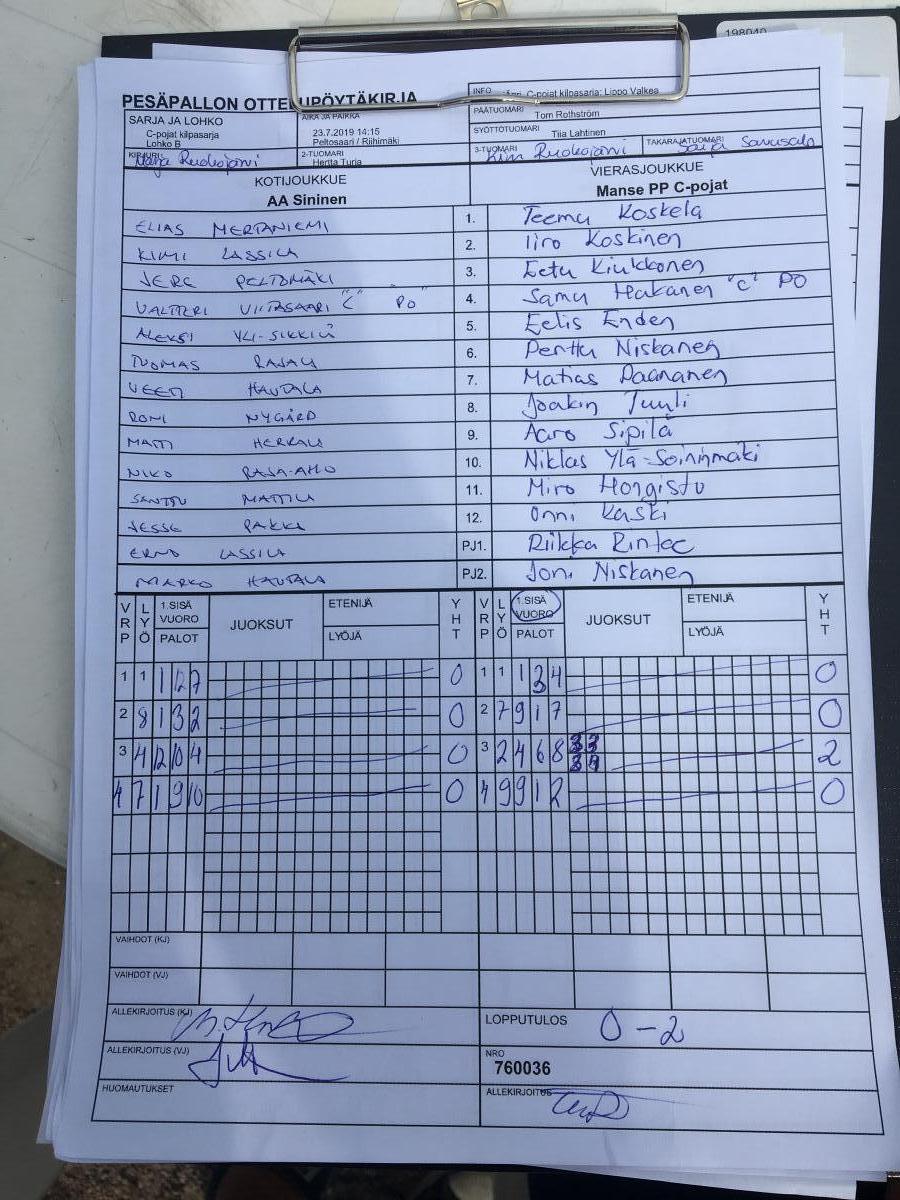 198040
PESÄPALLON OTTELUPÖYTÄKIRJA
INFO C-pojat kilpasarja: Lippo Valkea
SARJA JA LOHKO
C-pojat kilpasarja
Lohko B
AIKA JA PAIKKA
23.7.2019 14:15
Peltosaari / Riihimäki
PÄÄTUOMARI Tom Rothström
SYÖTTÖTUOMARI Tiia Lahtinen
KIRJURI Ruokojärvi
2-TUOMARI
Hertta Turja
3-TUOMARI Kim Ruokojärvi
TAKARAJATUOMARI
KOTIJOUKKUE
AA Sininen
VIERASJOUKKUE
Manse PP C-pojat
ELIAS MERTANIEMI 1. Teemu Koskela
KIMI LASSILA 2. Iiro Koskinen
JERE PELTOMÄKI 3. Eetu Kiukkonen
VALTTERI VIITASAARI "C" PO 4. Samu Hakanen "C" PO
ALEKSI YLI-SIKKILÄ 5. Eelis Enden
TUOMAS RAJALA 6. Perttu Niskanen
VEETI HAUTALA 7. Matias Paananen
RONI NYGÅRD 8. Joakin Tuuli
MATTI HERRALA 9. Aaro Sipilä
NIKO RAJA-AHO 10. Niklas Ylä-Soininmäki
SANTTU MATTILA 11. Miro Hongisto
JESSE PAKKA 12. Onni Kaski
ERNO LASSILA PJ1. Riikka Rintee
MARKO HAUTALA PJ2. Joni Niskanen
VRP LYÖ 1.SISÄ VUORO PALOT JUOKSUT ETENIJÄ LYÖJÄ YHT VRP LYÖ 1.SISÄ VUORO PALOT JUOKSUT ETENIJÄ LYÖJÄ YHT
1 1 1 12 7 0 1 1 1 3 4 0
2 8 1 3 2 0 2 7 9 1 7 0
3 4 12 10 4 0 3 2 4 6 8 2
4 7 1 9 10 0 4 9 9 1 2 0
VAIHDOT (KJ)
VAIHDOT (VJ)
ALLEKIRJOITUS (KJ)
LOPPUTULOS 0-2
ALLEKIRJOITUS (VJ)
NRO
760036
HUOMAUTUKSET
ALLEKIRJOITUS